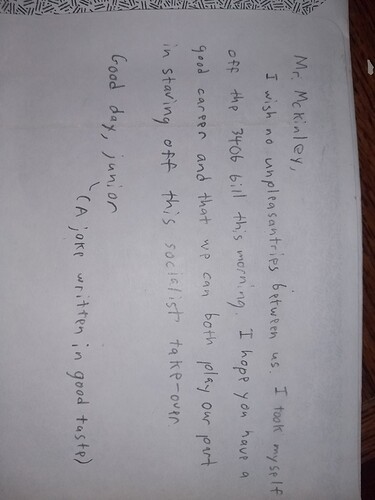 Mr. McKinley,
I wish no unpleasantries between us. I took myself
off the 3406 bill this morning. I hope you have a
good career and that we can both play our part
in staving off this socialist take-over
Good day, junior
(A joke written in good taste)